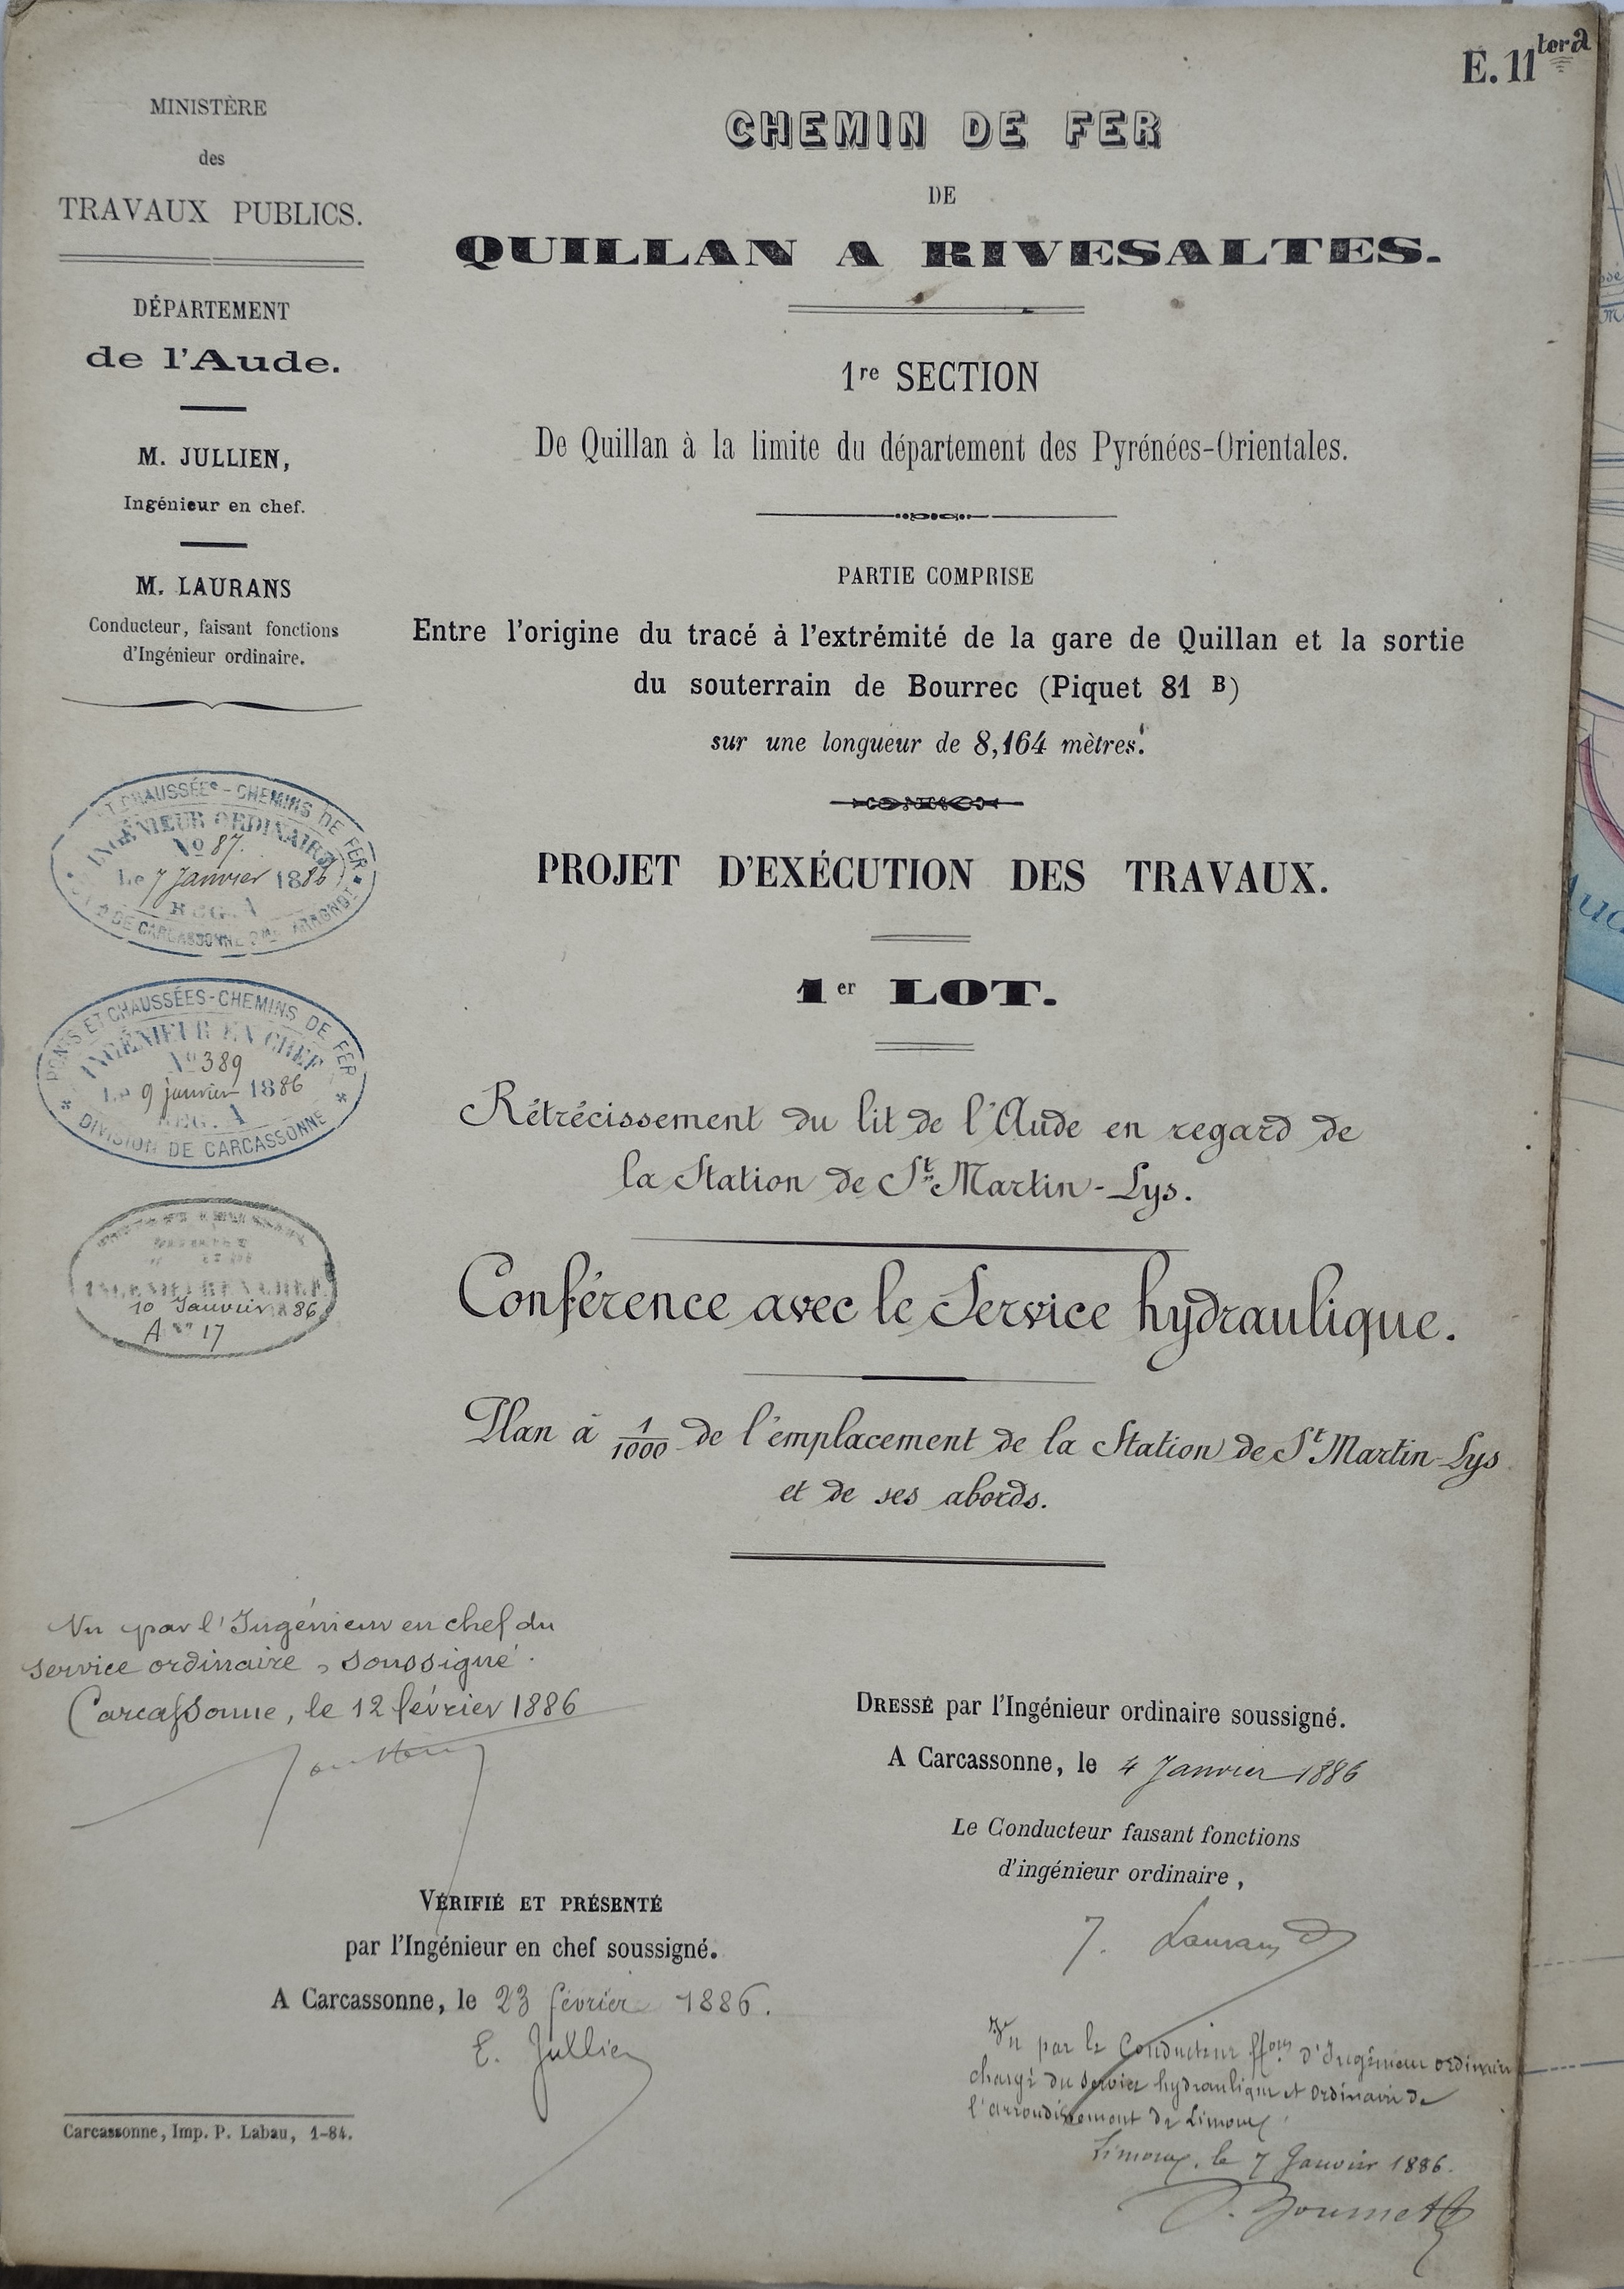 E. 11 ter a
MINISTÈRE
des
TRAVAUX PUBLICS.
DÉPARTEMENT
de l'Aude.
M. JULLIEN,
Ingénieur en chef.
M. LAURANS
Conducteur, faisant fonctions
d'Ingénieur ordinaire.
T CHAUSSÉES - CHEMINS DE FER
INGÉNIEUR ORDINAIRE
No 87.
Le 7 Janvier 1886
REG. A
DE CARCASSONNE
PONTS ET CHAUSSÉES-CHEMINS DE FER
INGÉNIEUR EN CHEF
No 389
Le 9 janvier 1886
REG. A
DIVISION DE CARCASSONNE
INGENIEUR EN CHEF
10 Janvier 1886
A No 17
CHEMIN DE FER
DE
QUILLAN A RIVESALTES.
1re SECTION
De Quillan à la limite du département des Pyrénées-Orientales.
PARTIE COMPRISE
Entre l'origine du tracé à l'extrémité de la gare de Quillan et la sortie
du souterrain de Bourrec (Piquet 81 B)
sur une longueur de 8,164 mètres.
PROJET D'EXÉCUTION DES TRAVAUX.
1er LOT.
Rétrécissement du lit de l'Aude en regard de
la Station de St Martin-Lys.
Conférence avec le Service hydraulique.
Plan à 1/1000 de l'emplacement de la Station de St Martin-Lys
et de ses abords.
Vu par l'Ingénieur en chef du
service ordinaire, soussigné.
Carcassonne, le 12 février 1886
VÉRIFIÉ ET PRÉSENTÉ
par l'Ingénieur en chef soussigné.
A Carcassonne, le 23 février 1886.
E. Jullien
DRESSÉ par l'Ingénieur ordinaire soussigné.
A Carcassonne, le 4 Janvier 1886
Le Conducteur faisant fonctions
d'ingénieur ordinaire,
J. Laurans
Vu par le Conducteur ffons d'Ingénieur ordinaire
chargé du service hydraulique et ordinaire de
l'arrondissement de Limoux
Limoux, le 7 Janvier 1886.
Carcassonne, Imp. P. Labau, 1-84.